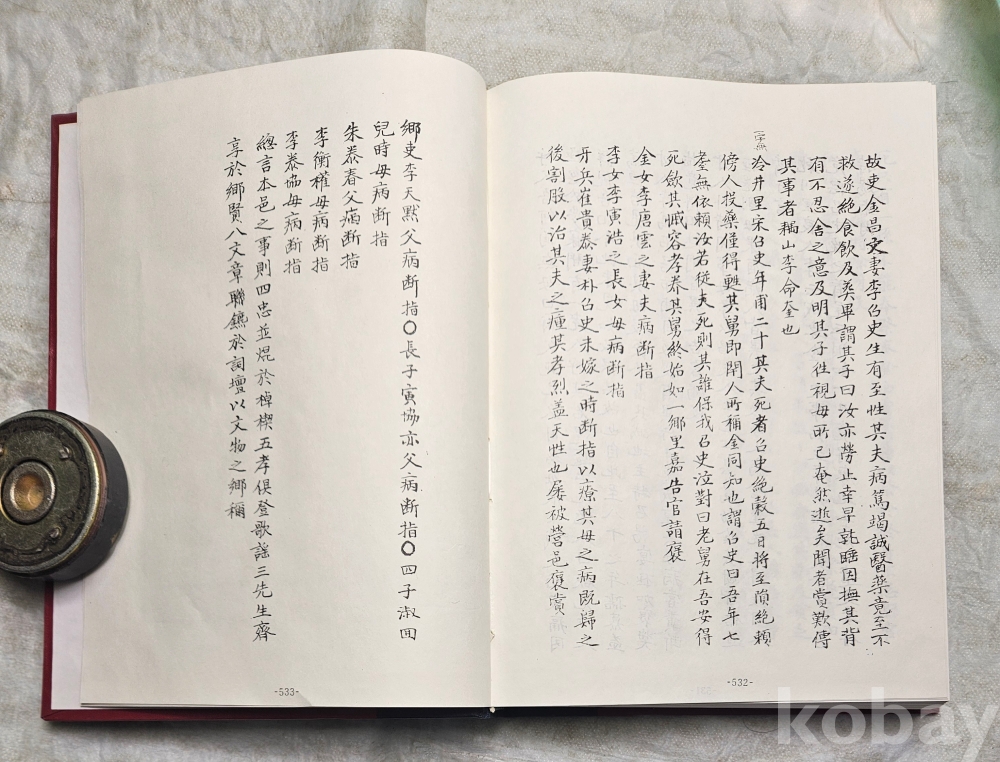 故吏金昌文妻李召史生有至性其夫病篤竭誠醫藥竟至不
救遂絶食飮及葬畢謂其子曰汝亦勞止幸早就睡因撫其背
有不忍舍之意及明其子徃視母所已奄然逝矣聞者賞歎傳
其事者稱山李命奎也
冷井里宋召史年甫二十其夫死者召史絶穀五日將至隕絶賴
傍人投藥僅得甦其舅即閑人所稱金同知也謂召史曰吾年七
耋無依賴汝若從夫死則其誰保我召史泣對曰老舅在吾安得
死歛其慽容孝养其舅終始如一鄕里嘉告官請褒
金女李唐雲之妻夫病断指
李女李寅浩之長女母病断指
牙兵崔貴泰妻朴召史未嫁之時断指以療其母之病既歸之
後割股以治其夫之瘇其孝烈盖天性也屡被營邑褒賞
-532-
鄕吏李天默父病断指〇長子寅協亦父病断指〇四子淑回
兒時母病断指
朱泰春父病断指
李衡權母病断指
李泰協母病断指
總言本邑之事則四忠並焜於棹楔五孝俱登歌謠三先生齊
享於鄕賢八文章聯鑣於詞壇以文物之鄕稱
-533-
kobay